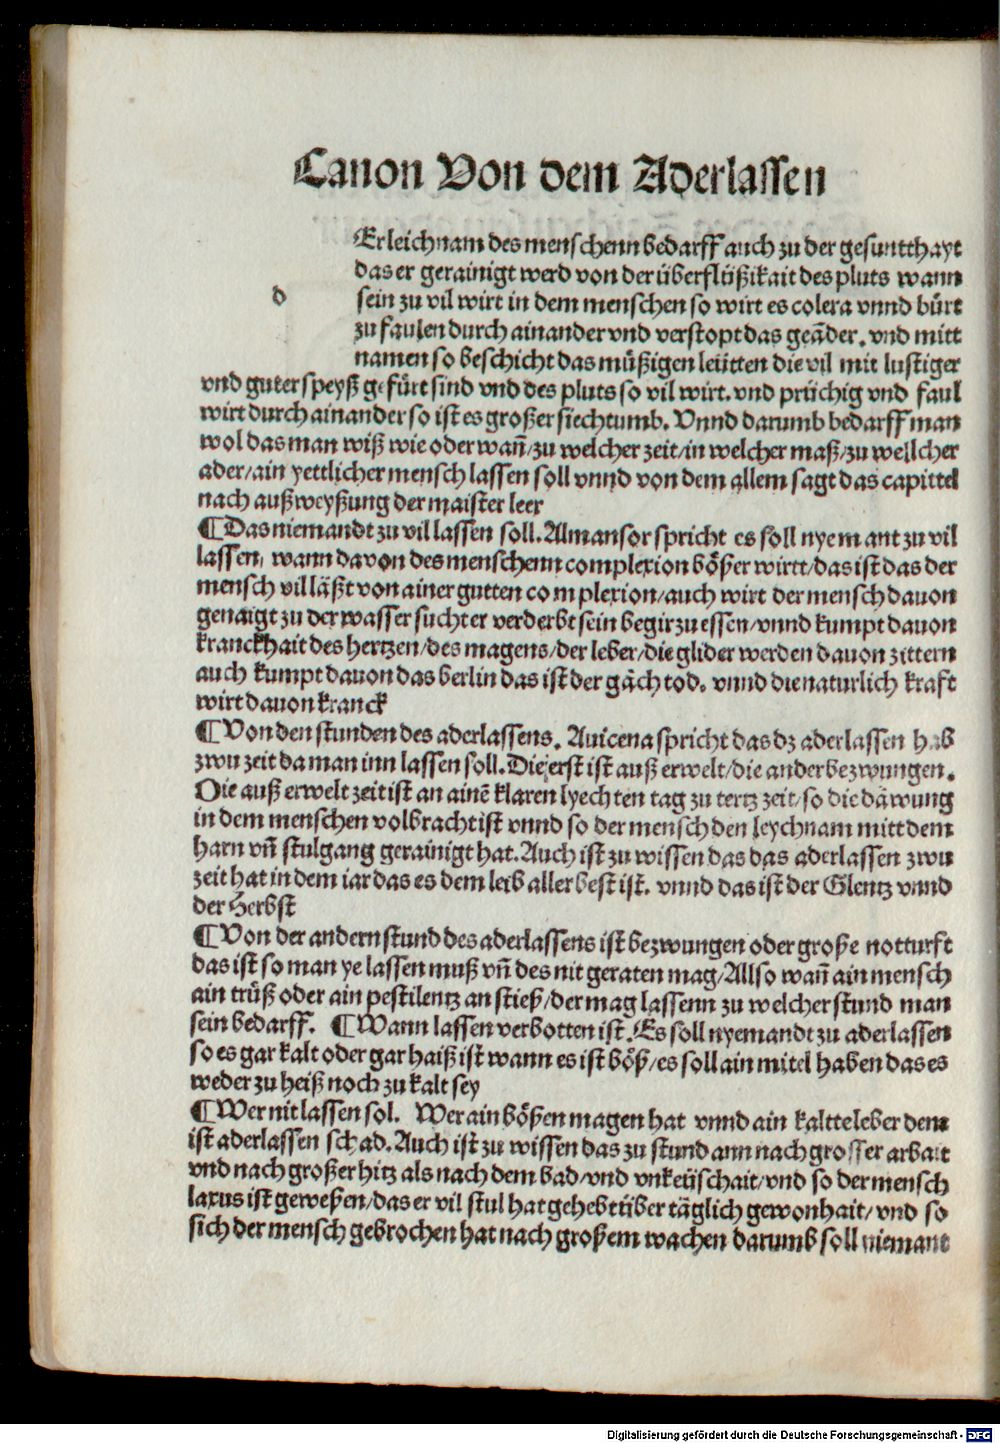 Canon Von dem Aderlassen
d
Er leichnam des menschenn bedarff auch zu der gesuntthayt
das er gerainigt werd von der überflüßikait des pluts wann
sein zu vil wirt in dem menschen so wirt es colera vnnd bürt
zu faulen durch ainander vnd verstopt das geäder. vnd mitt
namen so beschicht das müßigen leütten die vil mit lustiger
vnd guter speyß gefürt sind vnd des pluts so vil wirt. vnd prüchig vnd faul
wirt durch ainander so ist es großer siechtumb. Vnnd darumb bedarff man
wol das man wiß wie oder wan̄/zu welcher zeit/in welcher maß/zu wellcher
ader/ain yettlicher mensch lassen soll vnnd von dem allem sagt das capittel
nach außweyßung der maister leer
¶Das niemandt zu vil lassen soll. Almansor spricht es soll nyemant zu vil
lassen, wann davon des menschenn complexion bößer wirtt/das ist das der
mensch vil läßt von ainer gutten complexion/auch wirt der mensch dauon
genaigt zu der wasser sucht er verderbt sein begir zu essen/vnnd kumpt dauon
kranckhait des hertzen/des magens/der leber/die glider werden dauon zittern
auch kumpt dauon das berlin das ist der gäch tod. vnnd die naturlich kraft
wirt dauon kranck
¶Von den stunden des aderlassens. Auicena spricht das dz aderlassen hab
zwu zeit da man inn lassen soll. Die erst ist auß erwelt/die ander bezwungen.
Die auß erwelt zeit ist an ainē klaren lyechten tag zu tertz zeit/so die däwung
in dem menschen volbracht ist vnnd so der mensch den leychnam mitt dem
harn vn̄ stulgang gerainigt hat. Auch ist zu wissen das das aderlassen zwu
zeit hat in dem iar das es dem leib aller best ist. vnnd das ist der Glentz vnnd
der Herbst
¶Von der andern stund des aderlassens ist bezwungen oder große notturft
das ist so man ye lassen muß vn̄ des nit geraten mag/Allso wan̄ ain mensch
ain trüß oder ain pestilentz an stieß/der mag lassenn zu welcher stund man
sein bedarff. ¶Wann lassen verbotten ist. Es soll nyemandt zu aderlassen
so es gar kalt oder gar haiß ist wann es ist böß/es soll ain mitel haben das es
weder zu heiß noch zu kalt sey
¶Wer nit lassen sol. Wer ain bößen magen hat vnnd ain kaltte leber dem
ist aderlassen schad. Auch ist zu wissen das zu stund ann nach grosser arbait
vnd nach großer hitz als nach dem bad/vnd vnkeüschait/vnd so der mensch
laxus ist geweßen/das er vil stul hat gehebt über täglich gewonhait/vnd so
sich der mensch gebrochen hat nach großem wachen darumb soll niemant
Digitalisierung gefördert durch die Deutsche Forschungsgemeinschaft - DFG